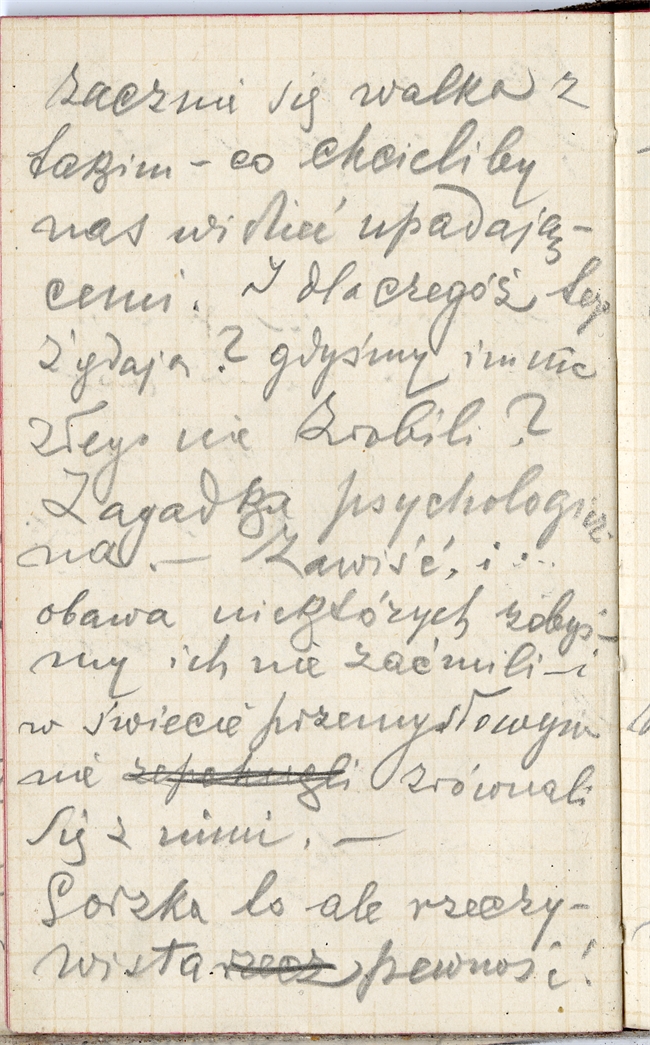 zacznie się walka z
takim – co chcieliby
nas widzieć upadają-
cemi. I dlaczegóż tego
żądają? gdyśmy im nic
złego nie zrobili?
Zagadka psychologicz-
na. — Zawiść, i ...
obawa niektórych żebyś-
my ich nie zaćmili – i
w świecie przemysłowym
nie zrównali
się z nimi. —
Gorzka to ale rzeczy-
wista rzecz pewność!